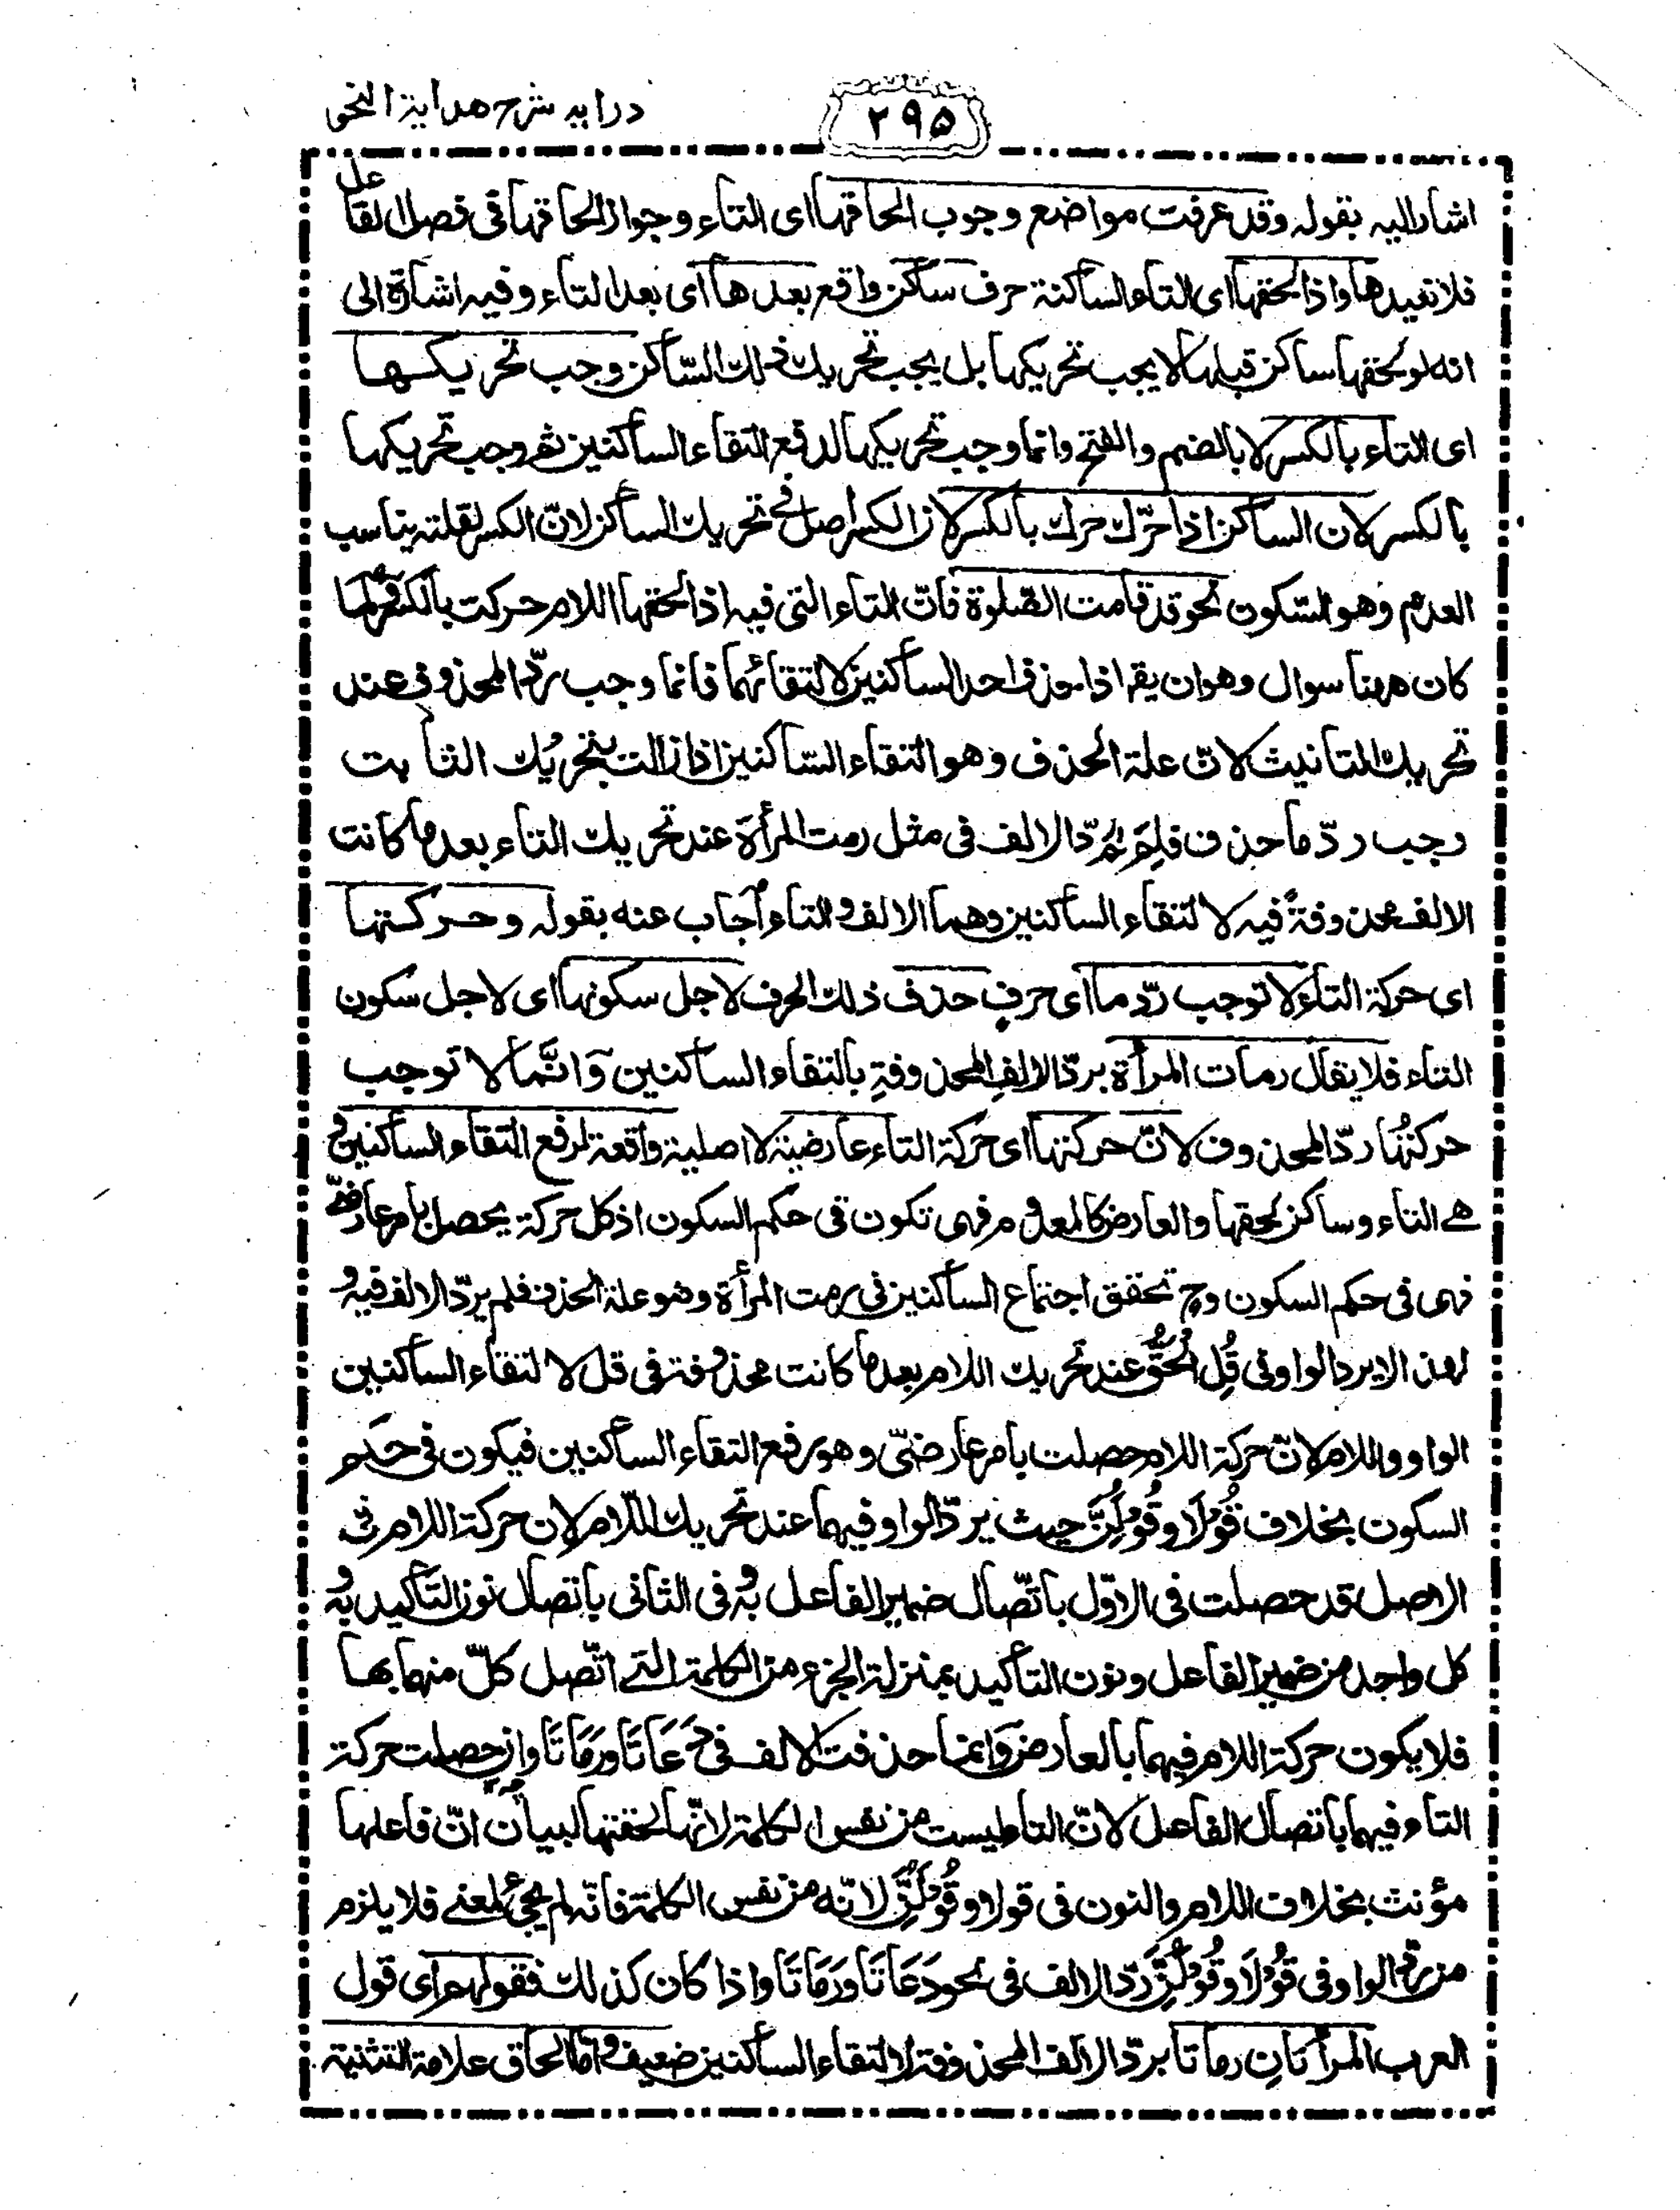 درایه شرح هدایة النحو
۲۹۵
اشار الیه بقوله وقد عرفت مواضع وجوب الحاقها ای التاء وجواز الحاقها فی فصل الفاعل
فلا نعیدها واذا لحقها ای التاء الساکنة حرف ساکن واقع بعدها ای بعد التاء وفیه اشارة الی
انه لو لحقها ساکن قبلها لا یجب تحریکها بل یجب تحریك ذلك السّاکن وجب تحریکها
ای التاء بالکسر لا بالضم والفتح وانما وجب تحریکها لدفع التقاء الساکنین ثم وجب تحریکها
بالکسر لان الساکن اذا حرّك حرك بالکسر لان الکسر اصل فی تحریك الساکن لانّ الکسر لقلته یناسب
العدم وهو السّکون نحو قد قامت الصّلوة فانّ التاء التی فیه اذا لحقها اللام حرکت بالکسر ولما
کان ههنا سوال وهو ان یقر اذا حذف احد الساکنین لالتقائهما فانما وجب ردّ المحذوف عند
تحریك التانیث لانّ علة الحذف وهو التقاء السّاکنین اذا زالت بتحریك الثابت
وجب ردّ ما حذف فلِمَ لم یردّ الالف فی مثل رمت المرأة عند تحریك التاء بعد ما کانت
الالف محذوفةً فیه لالتقاء الساکنین وهما الالف والتاء اجاب عنه بقوله وحرکتها
ای حرکة التاء لا توجب ردّ ما ای حرفٍ حذف ذلك الحرف لاجل سکونها ای لاجل سکون
التاء فلا یقال رمات المرأة بردّ الالفِ المحذوفةِ بالتقاء الساکنین وَانَّما لا توجب
حرکتُها ردّ المحذوف لانّ حرکتها ای حرکة التاء عارضیة لا اصلیة واقعة لرفع التقاء الساکنین و
هے التاء وساکن لحقها والعارض کالمعدوم فهی تکون فی حکم السکون اذ کل حرکة یحصل بامر عارضے
فهی فی حکم السکون وح تحقق اجتماع الساکنین فی رمت المرأة وهو علة الحذف فلم یردّ الالف فیه و
لهذا لا یرد الواو فی قُلِ الحَقُّ عند تحریك اللام بعد ما کانت محذوفة فی قل لالتقاء الساکنین
الواو واللام لانّ حرکة اللام حصلت بامر عارضیّ وهو رفع التقاء الساکنین فیکون فی حکم
السکون بخلاف قُوْلَا وقُوْلَنَّ حیث یردّ الواو فیهما عند تحریك اللّام لان حرکة اللام فی
الاصل قد حصلت فی الاوّل باتّصال ضمیر الفاعل به وفی الثانی باتصال نون التّأکید به و
کل واحد من ضمیر الفاعل ونون التأکید بمنزلة الجزء من الکلمة التے اتّصل کلّ منهما بها
فلا یکون حرکة اللام فیهما بالعارض وَانما حذفت الالف فی دَعَاتَا ورَمَاتَا وان حصلت حرکة
التاء فیهما باتصال الفاعل لانّ التاء لیست من نفس الکلمة لانّها لحقتها لبیان انّ فاعلها
مؤنث بخلاف اللام والنون فی قولا وقُوْلَنَّ لانّه من نفس الکلمة فانّه لم یجئ لمعنے فلا یلزم
من ردّ الواو فی قُوْلَا وقُوْلَنَّ ردّ الالف فی نحو دَعَاتَا ورَمَاتَا واذا کان کذلك فقولهم ای قول
العرب المرأتانِ رماتا بردّ الالف المحذوفة لالتقاء الساکنین ضعیف واما الحاق علامة التثنیة